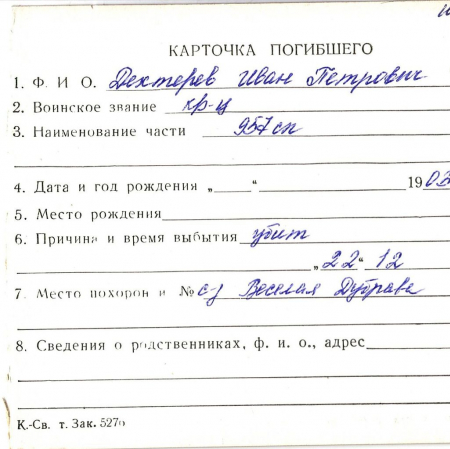 КАРТОЧКА ПОГИБШЕГО
1. Ф. И О. Дехтерев Иван Петрович
2. Воинское звание кр-ц
3. Наименование части 957 сп
4. Дата и год рождения „ “ 1903
5. Место рождения
6. Причина и время выбытия убит
„22“ 12
7. Место похорон и № с-з Веселая Дубрава
8. Сведения о родственниках, ф. и. о., адрес
К.-Св. т. Зак. 527